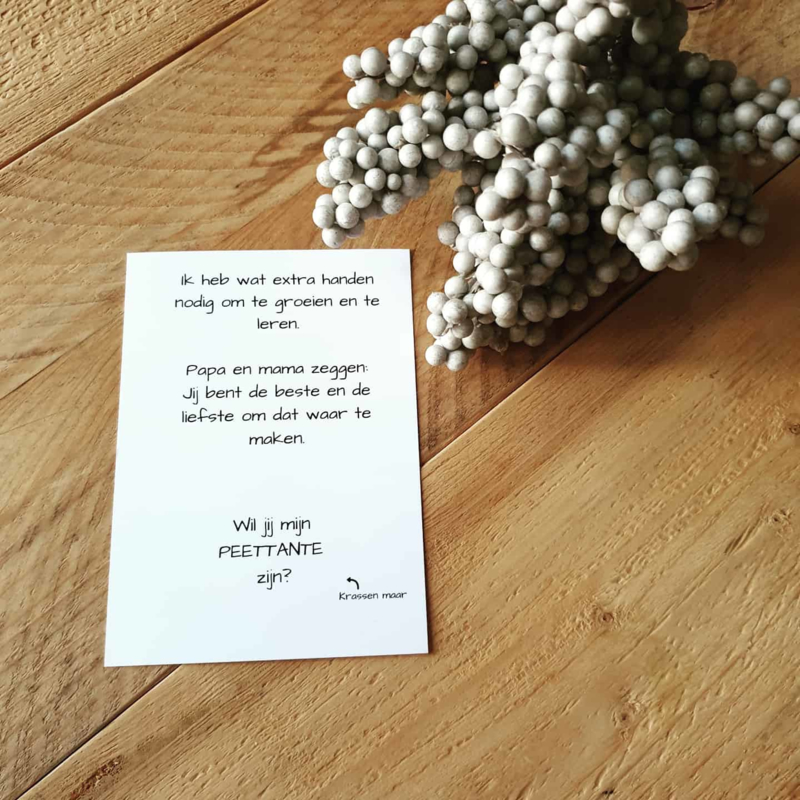 Ik heb wat extra handen
nodig om te groeien en te
leren.
Papa en mama zeggen:
Jij bent de beste en de
liefste om dat waar te
maken.
Wil jij mijn
PEETTANTE
zijn?
Krassen maar